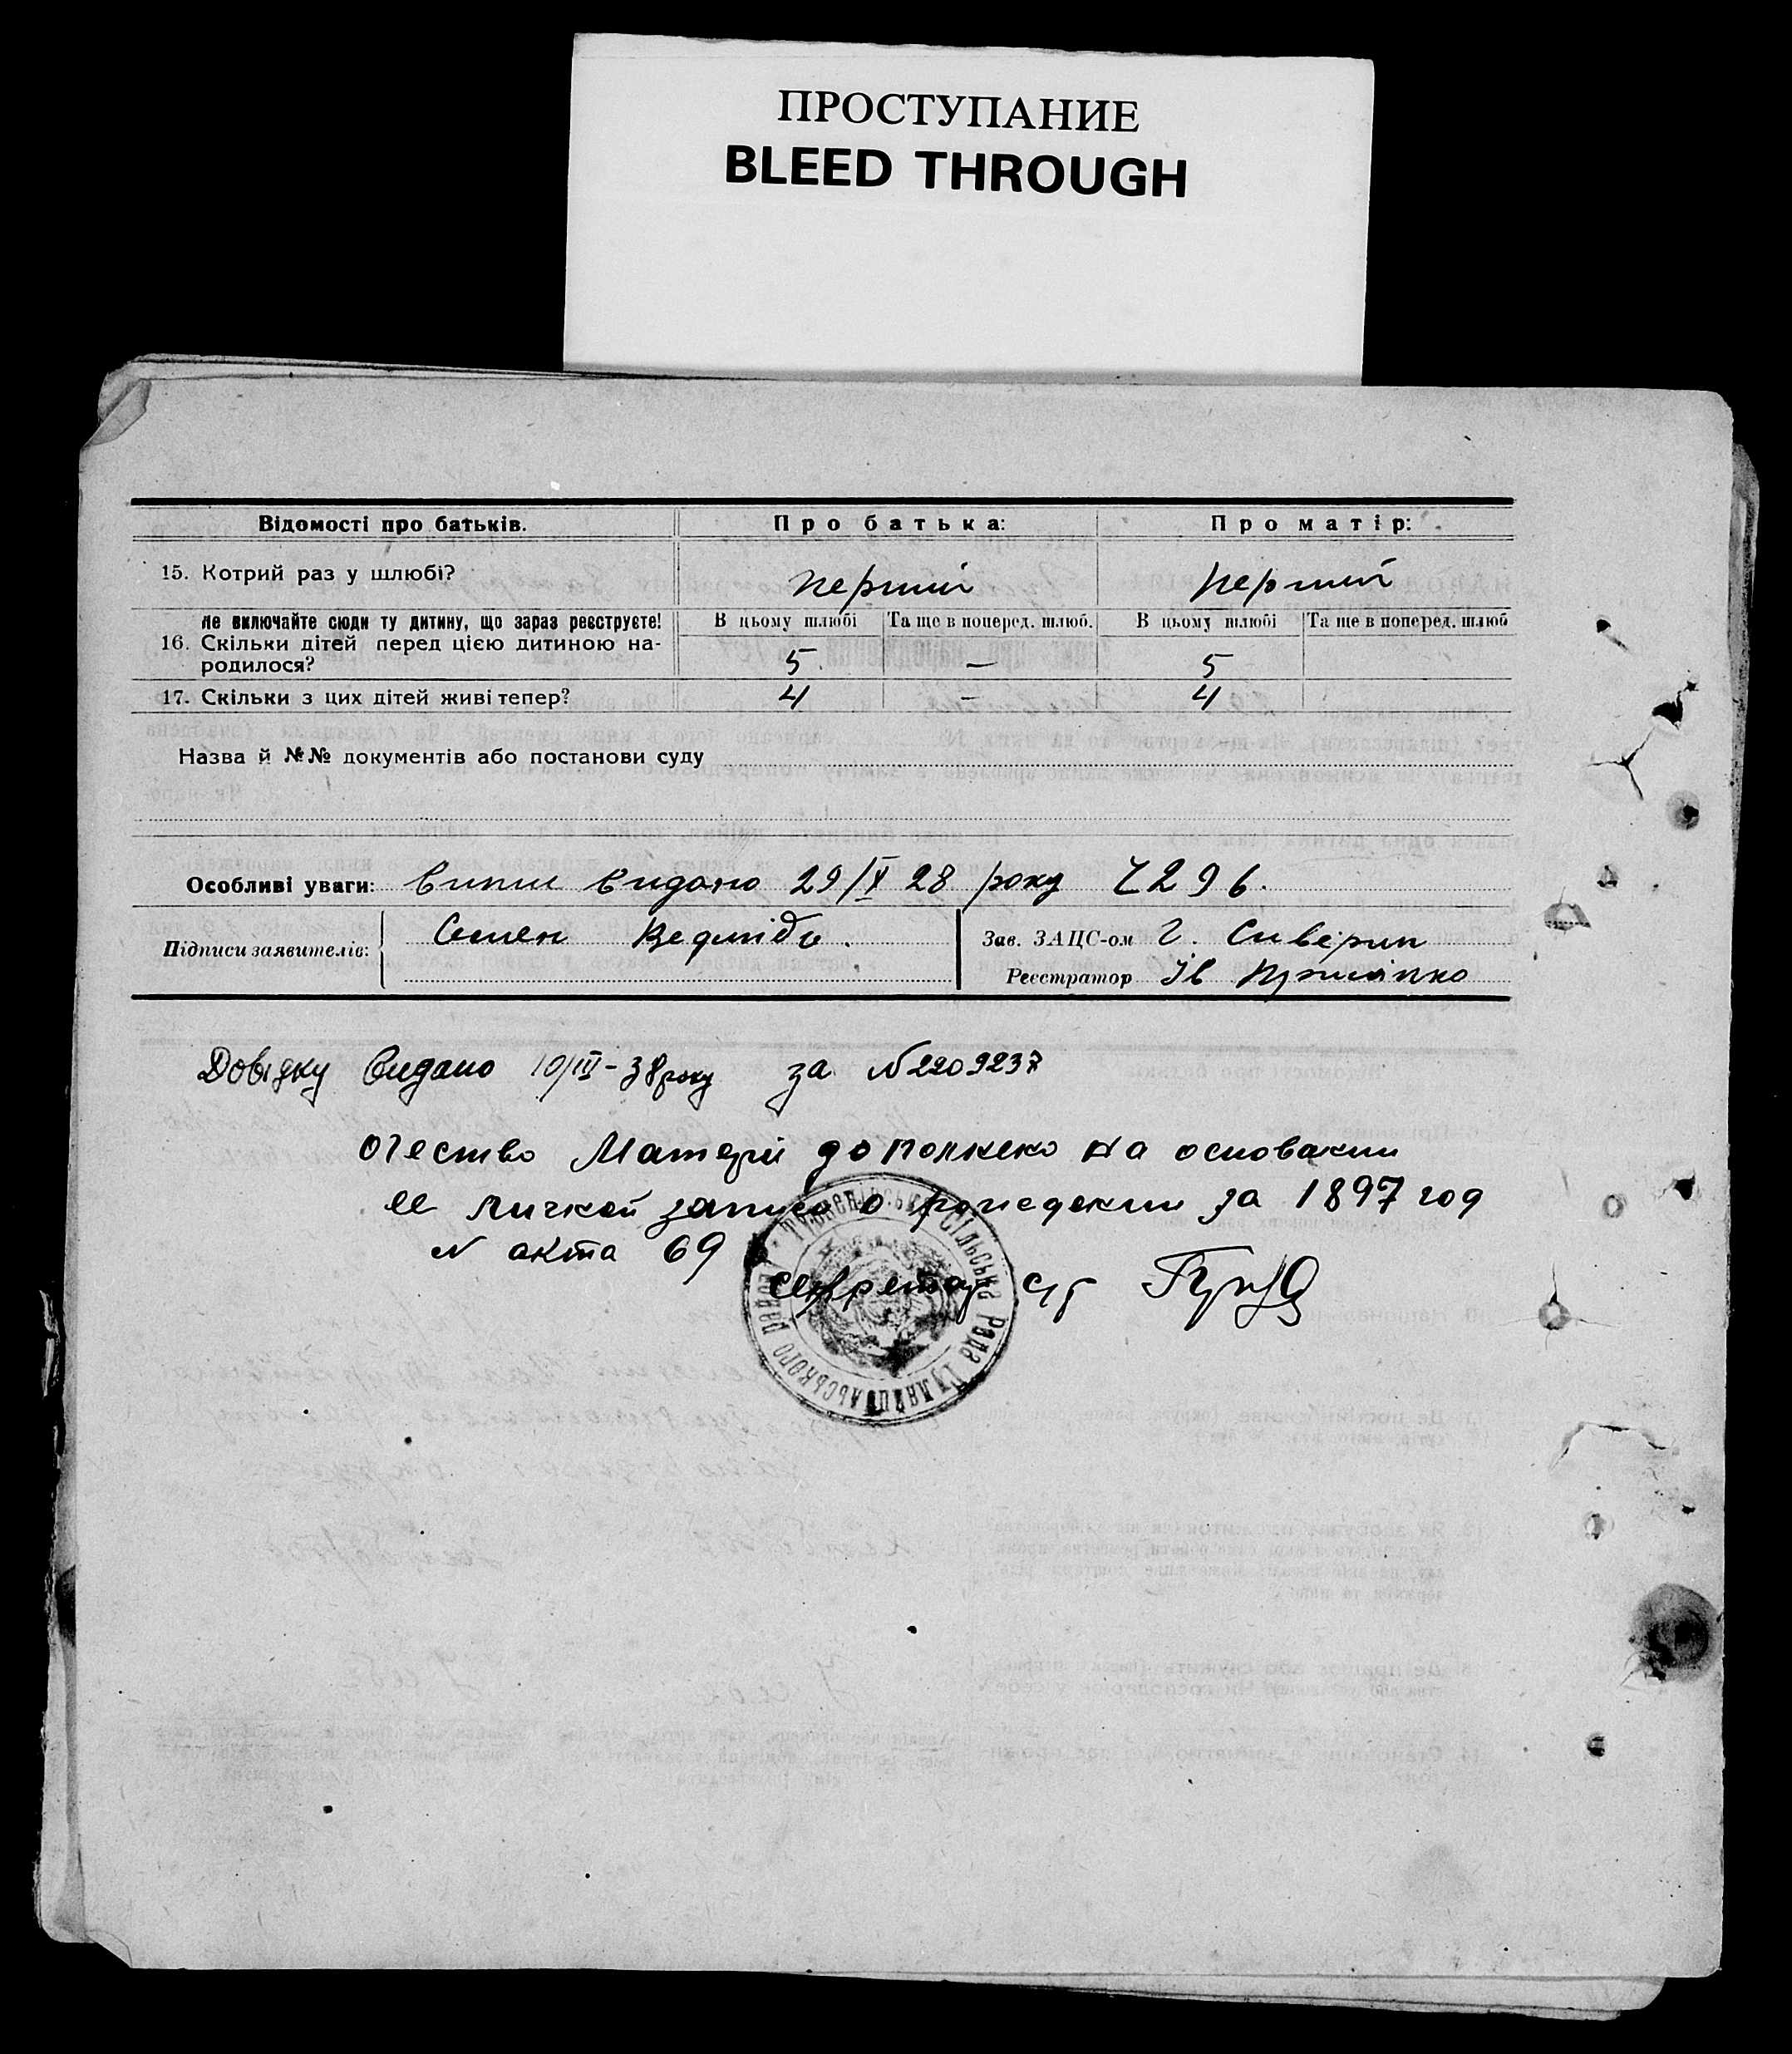 ПРОСТУПАНИЕ
BLEED THROUGH
Відомості про батьків. Про батька: Про матір:
15. Котрий раз у шлюбі? перший перший
Не включайте сюди ту дитину, що зараз реєструєте! В цьому шлюбі Та ще в поперед. шлюб. В цьому шлюбі Та ще в поперед. шлюб
16. Скільки дітей перед цією дитиною на-
родилося? 5 — 5
17. Скільки з цих дітей живі тепер? 4 — 4
Назва й №№ документів або постанови суду
Особливі уваги: видано 29/IX 28 року 296.
Підписи заявителів: Семен Ведмідь. Зав. ЗАЦС-ом Г. Сиверин
Реєстратор Ів
Довідку видано 10/III-38 року за №2209237
Отество Матери дополнено на основании
ее личной записи о рождении за 1897 год
N акта 69
секретар с/р
Сільська Рада Гуляйпільського району